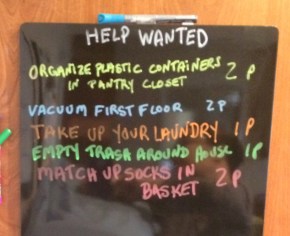 HELP WANTED
ORGANIZE PLASTIC CONTAINERS
IN PANTRY CLOSET 2 P
VACUUM FIRST FLOOR 2 P
TAKE UP YOUR LAUNDRY 1 P
EMPTY TRASH AROUND HOUSE 1 P
MATCH UP SOCKS IN
BASKET 2 P